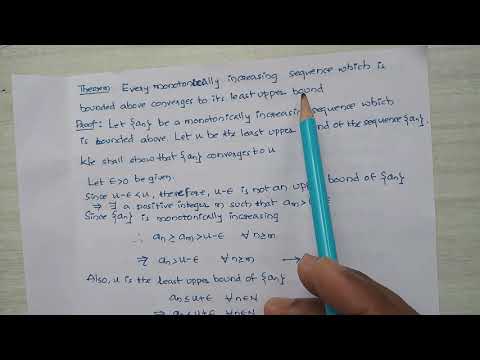 Theorem: Every monotonically increasing sequence which is
bounded above converges to its least upper bound
Proof: Let {an} be a monotonically increasing sequence which
is bounded above. Let u be the least upper bound of the sequence {an}.
We shall show that {an} converges to u
Let ϵ>0 be given.
Since u-ϵ<u, therefore, u-ϵ is not an upper bound of {an}
⇒ ∃ a positive integer m such that am>
Since {an} is monotonically increasing
∴ an≥am>u-ϵ ∀ n≥m
⇒ an>u-ϵ ∀ n≥m →
Also, u is the least upper bound of {an}
an≤u+ϵ ∀ n∈N
⇒ an≤u+ϵ ∀ n∈N